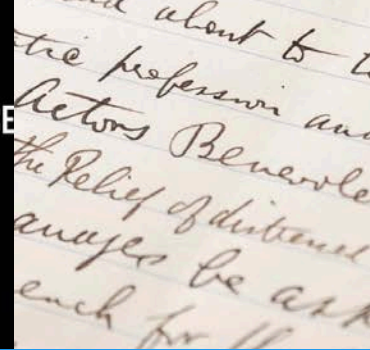 about to
tic profession and
E
Actors Benevole
the Relief of distressed
anages be ask
ench for th